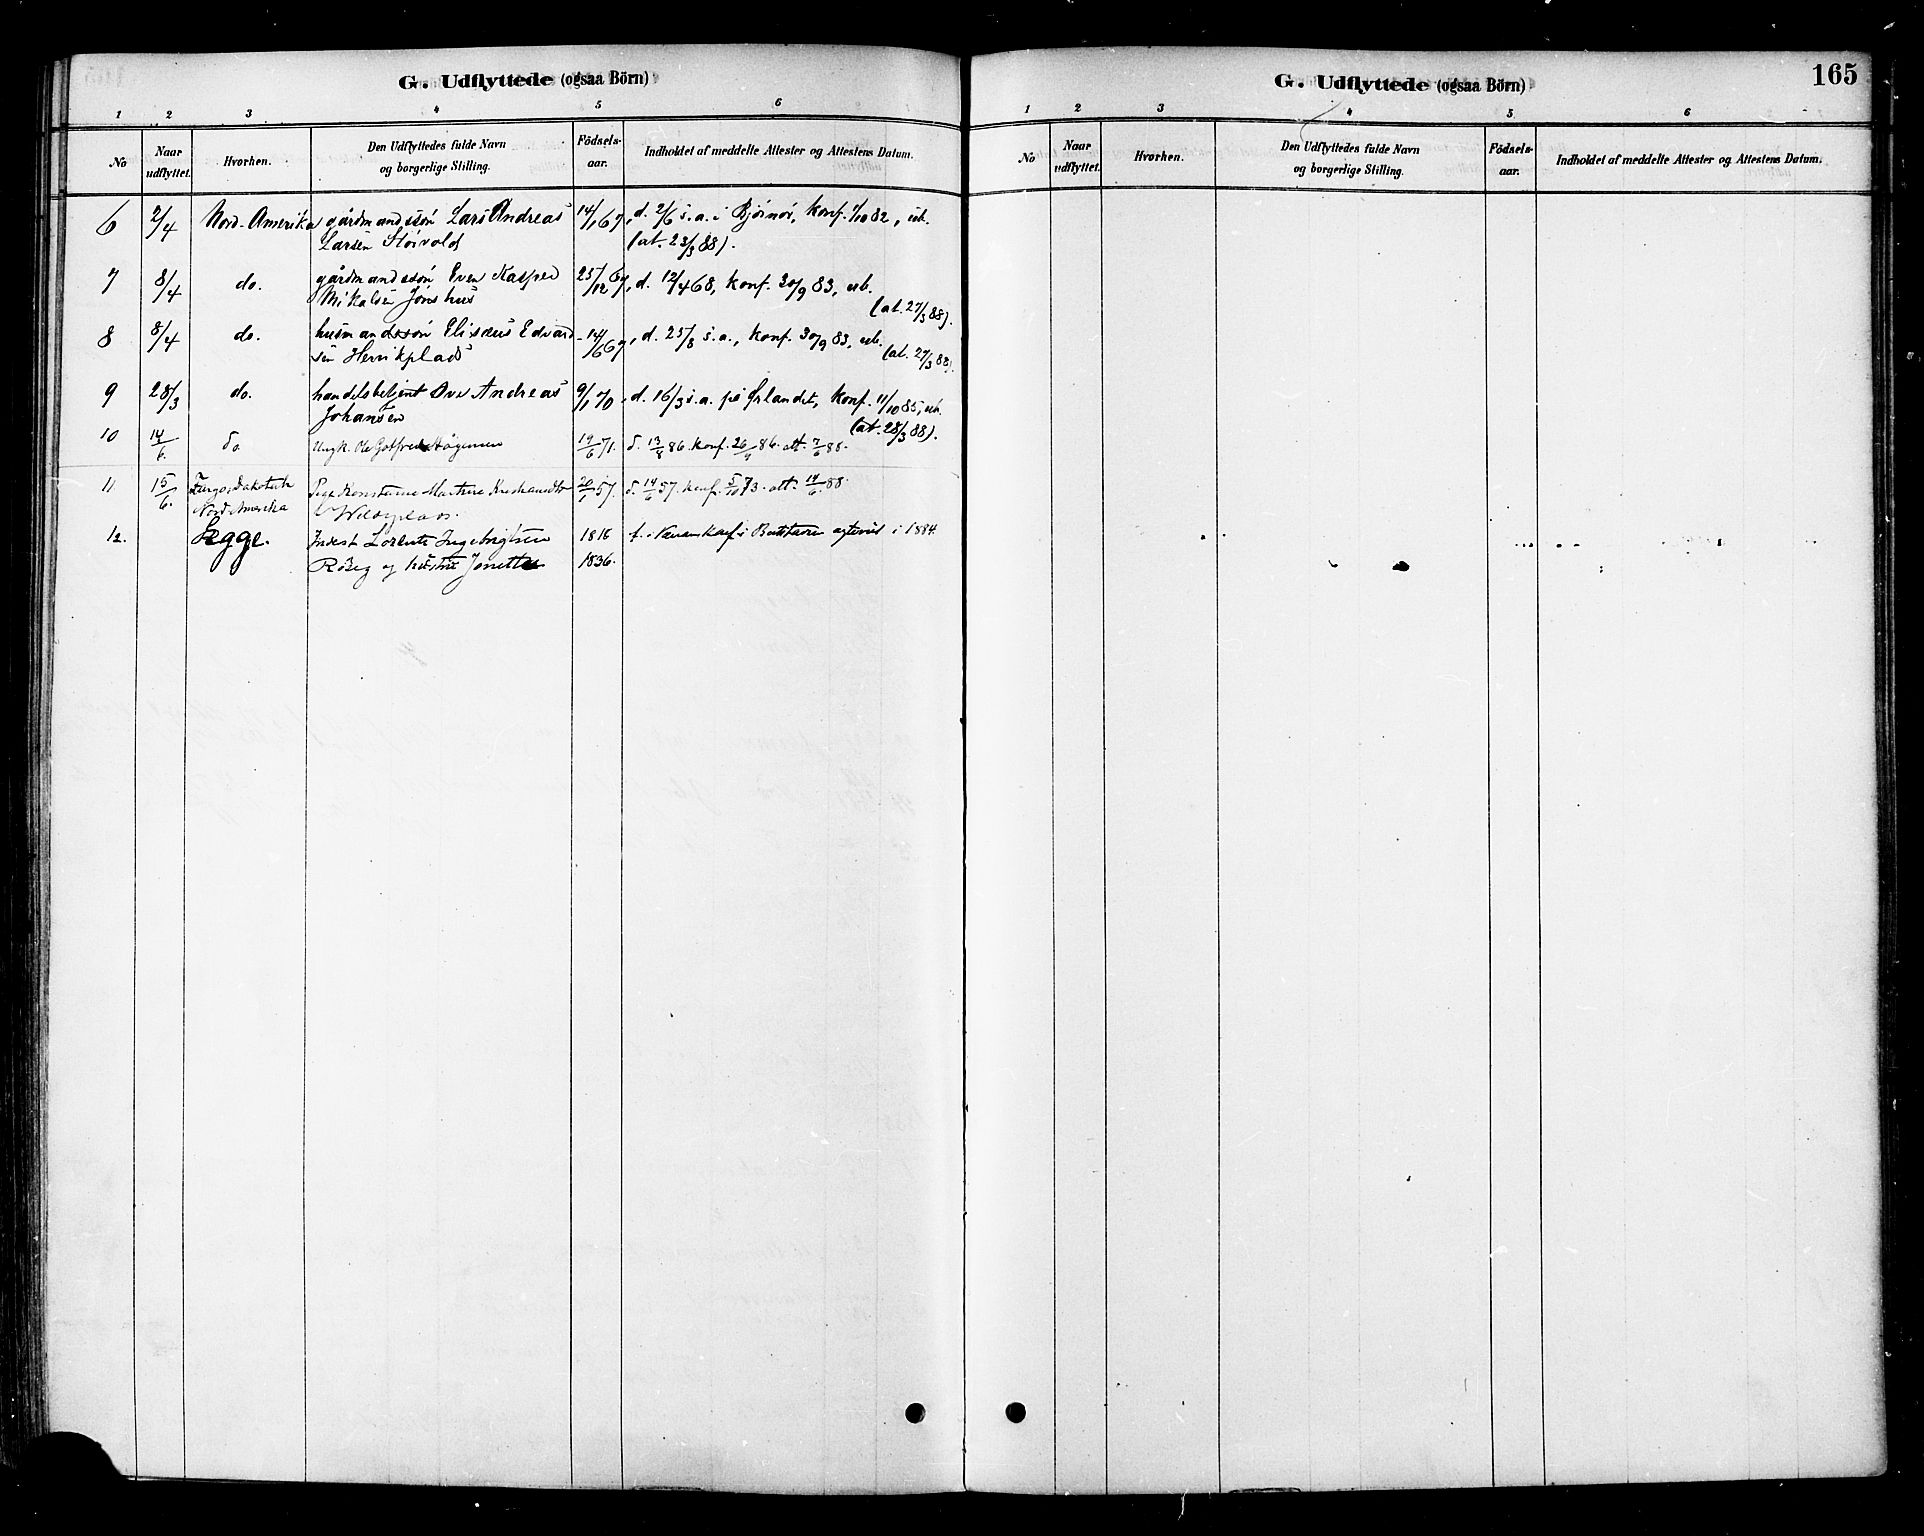 G. Udflyttede (ogsaa Börn)
1 2 3 4 5 6
No
Naar udflyttet.
Hvorhen.
Den Udflyttedes fulde Navn og borgerlige Stilling.
Födsels-aar.
Indholdet af meddelte Attester og Attestens Datum.
6 2/4 Nord-Amerika gårdmandssön Lars Andreas 14/1 67, d. 2/6 s.a. i Bjørnør, konf. 1/10 82, ub.
Larsen (at. 23/3 88).
7 8/4 do. gårdmandssön Even Kasper 25/12 67, d. 12/4 68, konf. 30/9 83, ub.
Mikalsen Jönshus (at. 27/3 88).
8 8/4 do. husmandssön Elisæus Edvard- 14/6 67, d. 25/8 s.a., konf. 30/9 83, ub.
sen Henrikplads (at. 27/3 88).
9 28/3 do. handelsbetjent Ove Andreas 9/1 70, d. 16/3 s.a. på Ørlandet, konf. 11/10 85, ub.
Johansen (at. 28/3 88).
10 14/6. do Ungk. Ole Gotfred Hågensen 19/6 71. d. 13/8 86. konf. 26/9 86. att. 7/6 88.
11 15/6. Fargo, Dakota Pige Konstanse Martine 20/1 57. d. 14/6 57. konf. 5/10 73. att. 14/6. 88.
Nord Amerika
12. Egge. Inderst Lorents Ingebrigtsen 1816 i 1884.
og hustru Jonetta 1836.
G. Udflyttede (ogsaa Börn)
165
1 2 3 4 5 6
No
Naar udflyttet.
Hvorhen.
Den Udflyttedes fulde Navn og borgerlige Stilling.
Födsels-aar.
Indholdet af meddelte Attester og Attestens Datum.